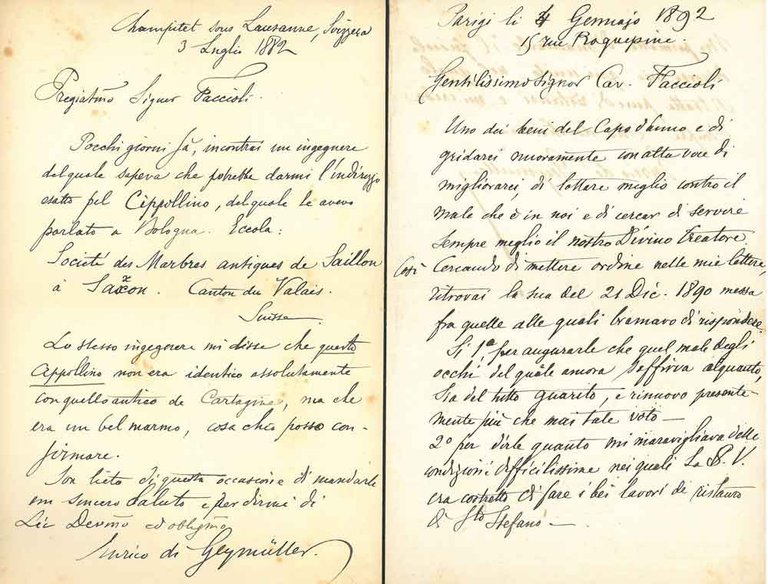 Champitet sous Lausanne, Svizzera
3 Luglio 1882
Pregiatmo Signor Faccioli.
Pochi giorni fà, incontrai un ingegnere
del quale sapeva che potrebbe darmi l'indirizzo
esatto pel Cippollino, del quale le avevo
parlato a Bologna. Eccola:
Societé des Marbres antiques de Saillon
à Saxon. Canton du Valais.
Suisse
Lo stesso ingegnere mi disse che questo
Cippollino non era identico assolutamente
con quello antico de Cartagine, ma che
era un bel marmo, cosa che posso con-
firmare.
Son lieto di questa occasione di mandarle
un sincero saluto e per dirmi di
Lei Devmo ed obligmo
Enrico di Geymüller.
Parigi li 4 Gennajo 1892
15 rue Roquépine.
Gentilissimo Signor Cav. Faccioli
Uno dei beni del Capo d'anno e di
gridarci nuovamente con alta voce di
migliorarci, di lottare meglio contro il
male che è in noi e di cercar di servire
sempre meglio il nostro Divino Creatore
Così Cercando di mettere ordine nelle mie lettere,
ritrovai la sua del 21 Dic. 1890 messa
fra quelle alle quali bramavo di rispondere.
Si 1ª per augurarle che quel male degli
occhi del quale ancora soffriva alquanto,
sia del tutto guarito, e rinnovo presente-
mente più che mai tale voto —
2º per dirle quanto mi maravigliava delle
condizioni difficilissime nei quali la S. V.
era costretto di fare i bei lavori di ristauro
di Sto Stefano —